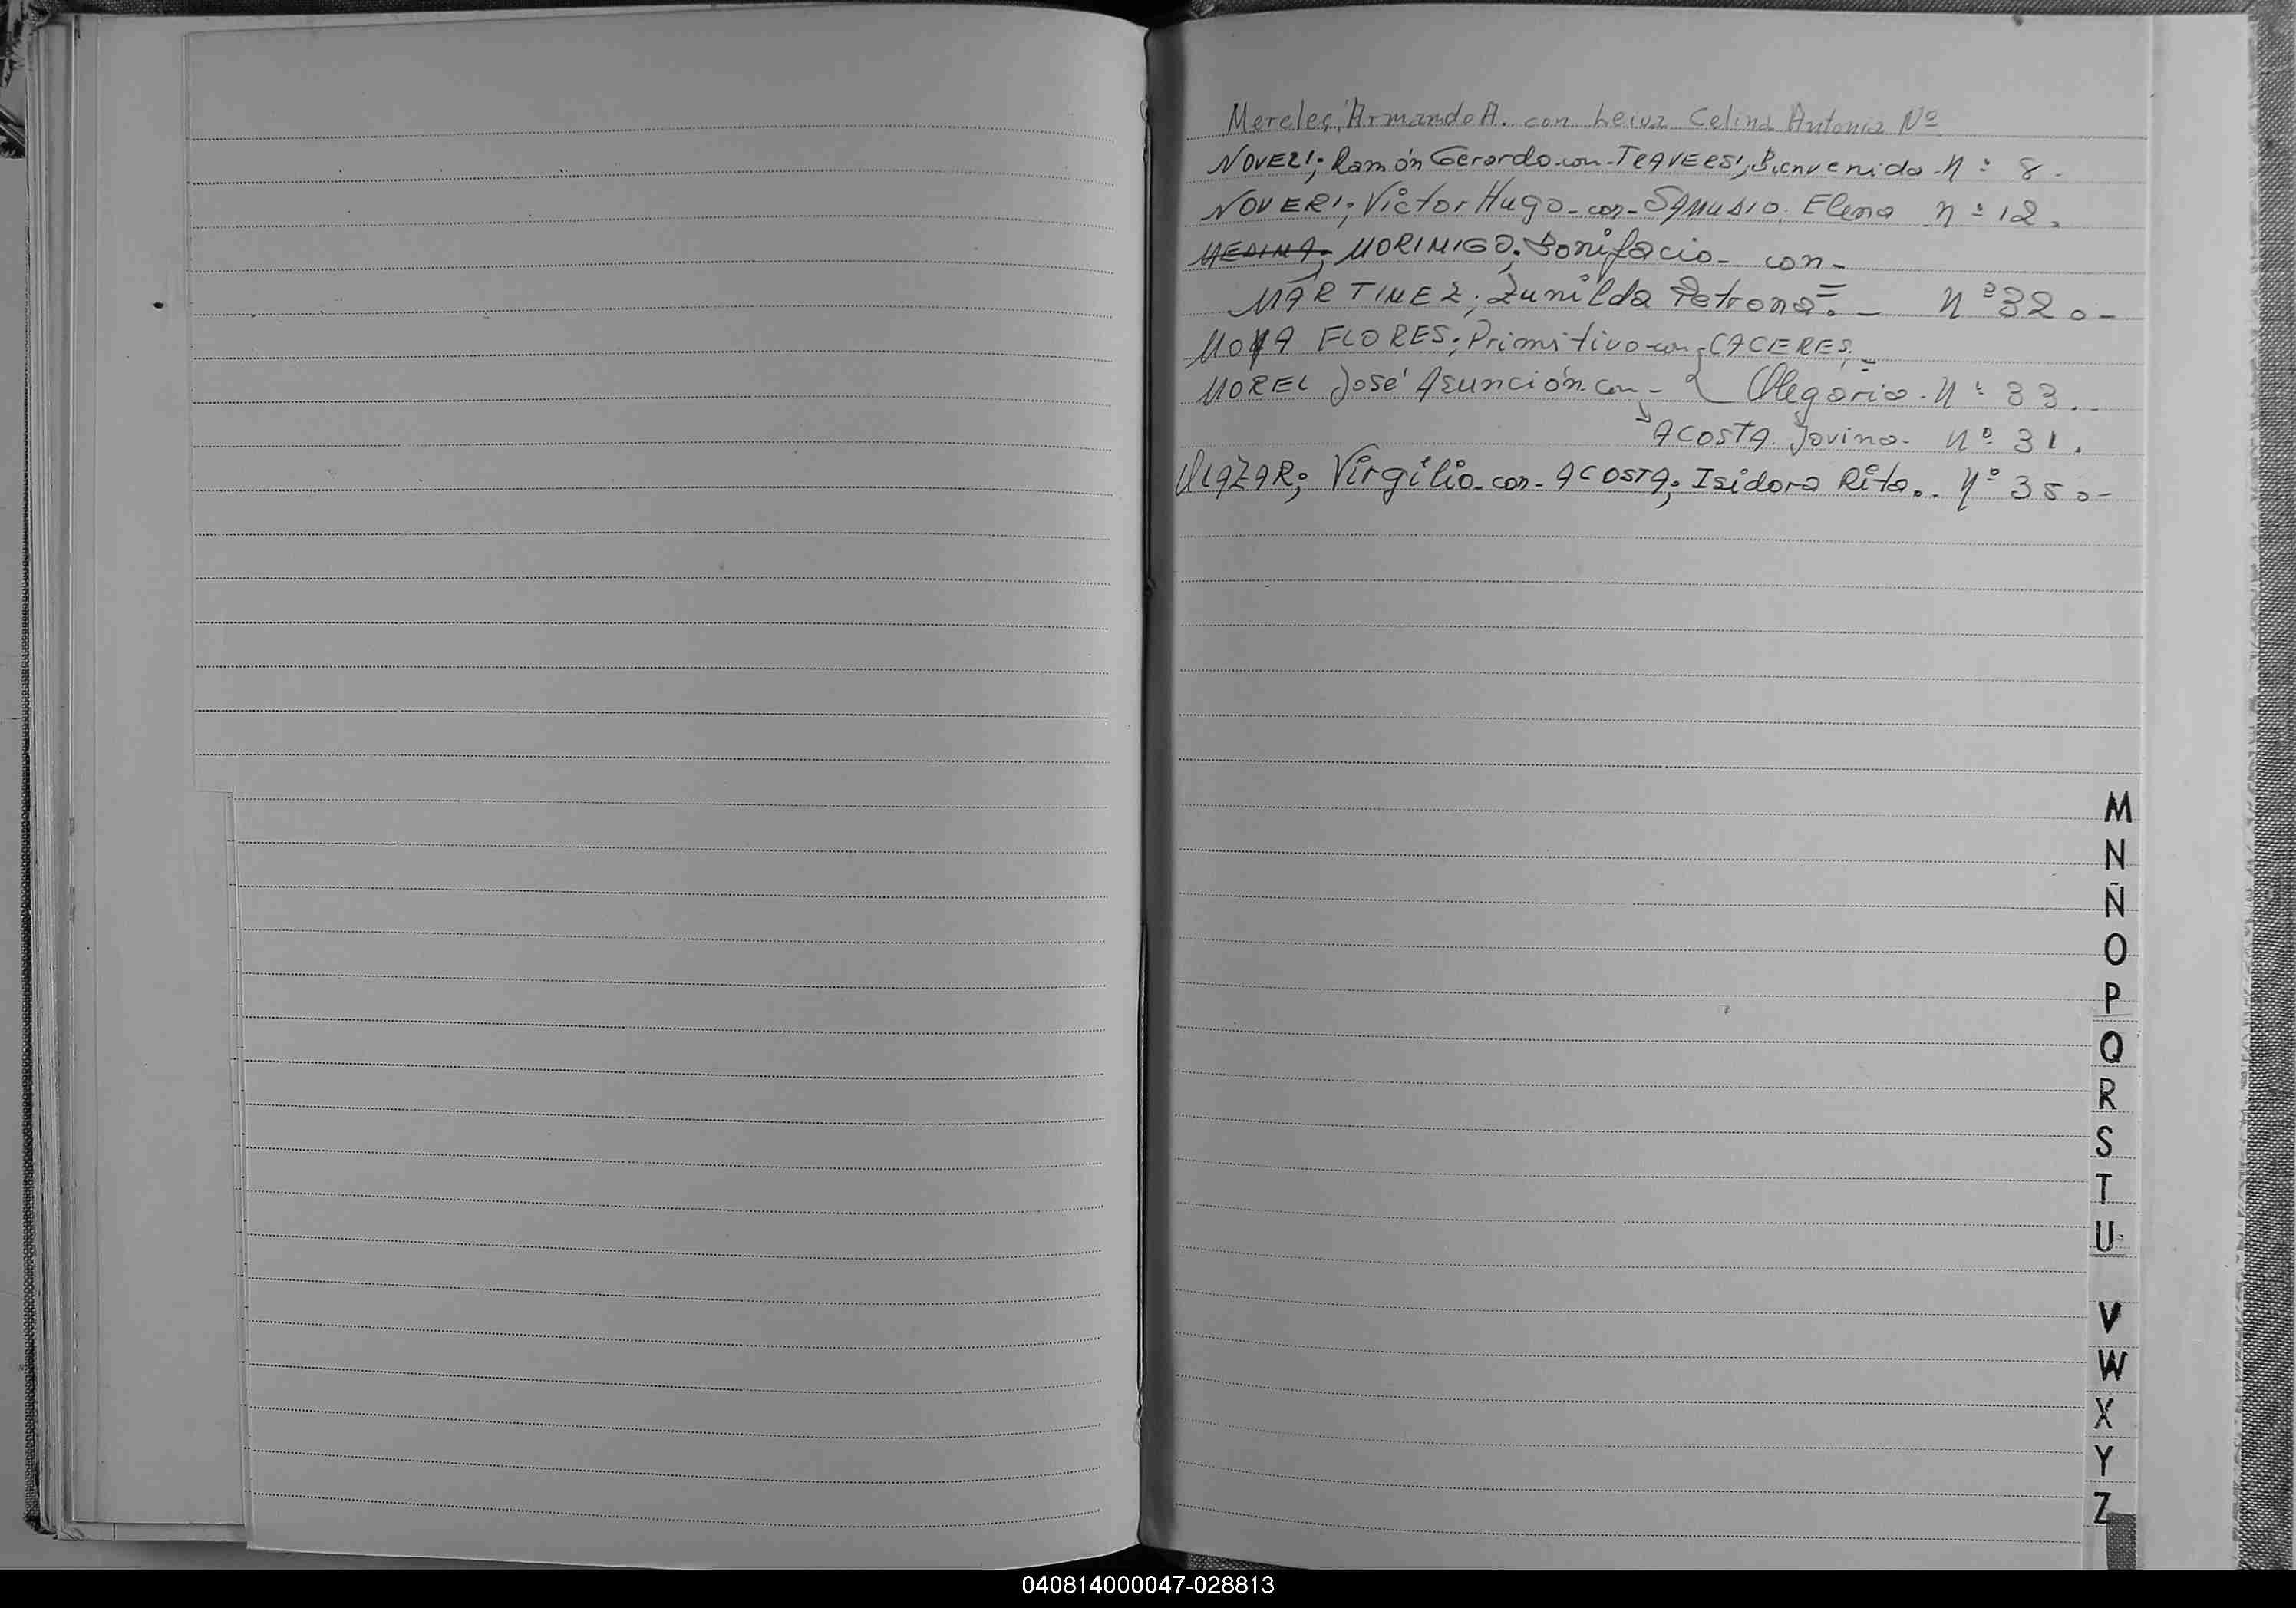 Mereles, Armando A. con Leiva Celina Antonia Nº
NOVERI; Ramón Gerardo-con-TRAVERSI, Bienvenida-Nº 8-
NOVERI; Víctor Hugo-con-SAMUDIO. Elena nº 12.
MEDINA; MORINIGO; Bonifacio- con-
MARTINEZ; Zunilda Petrona=.- Nº 32.-
MOYA FLORES; Primitivo-con-CACERES;-
MOREL José Asunción con- Olegaria. Nº 33.-
ACOSTA Jovina- Nº 31.
OLAZAR; Virgilio-con-ACOSTA; Isidora Rita.- Nº 35.-
M
N
Ñ
O
P
Q
R
S
T
U
V
W
X
Y
Z
040814000047-028813